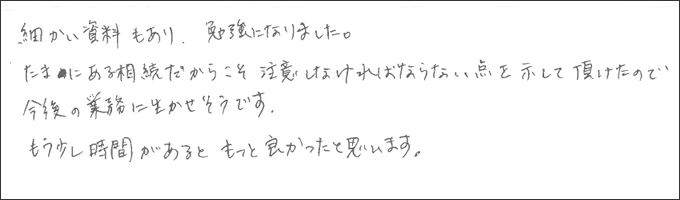 細かい資料もあり、勉強になりました。
たまにある相続だからこそ 注意しなければならない点を示して頂けたので
今後の業務に生かせそうです。
もう少し時間があると もっと良かったと思います。